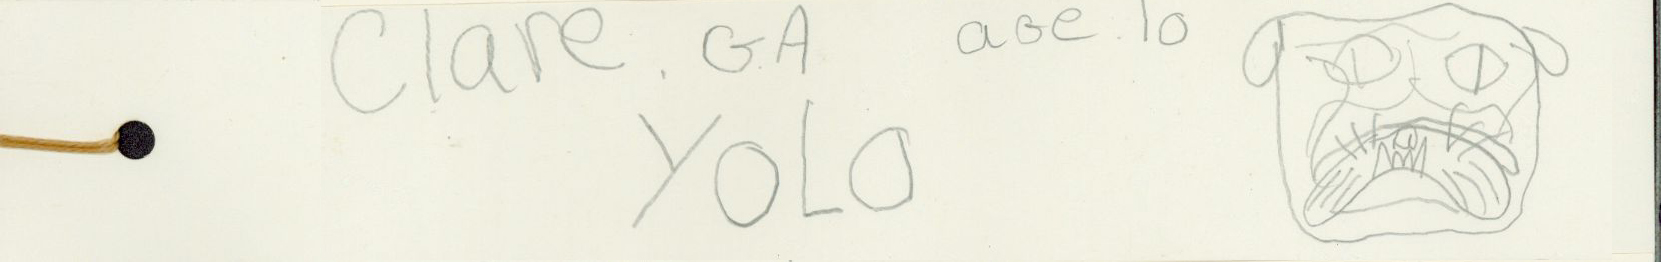 Clare. GA age. 10
YOLO